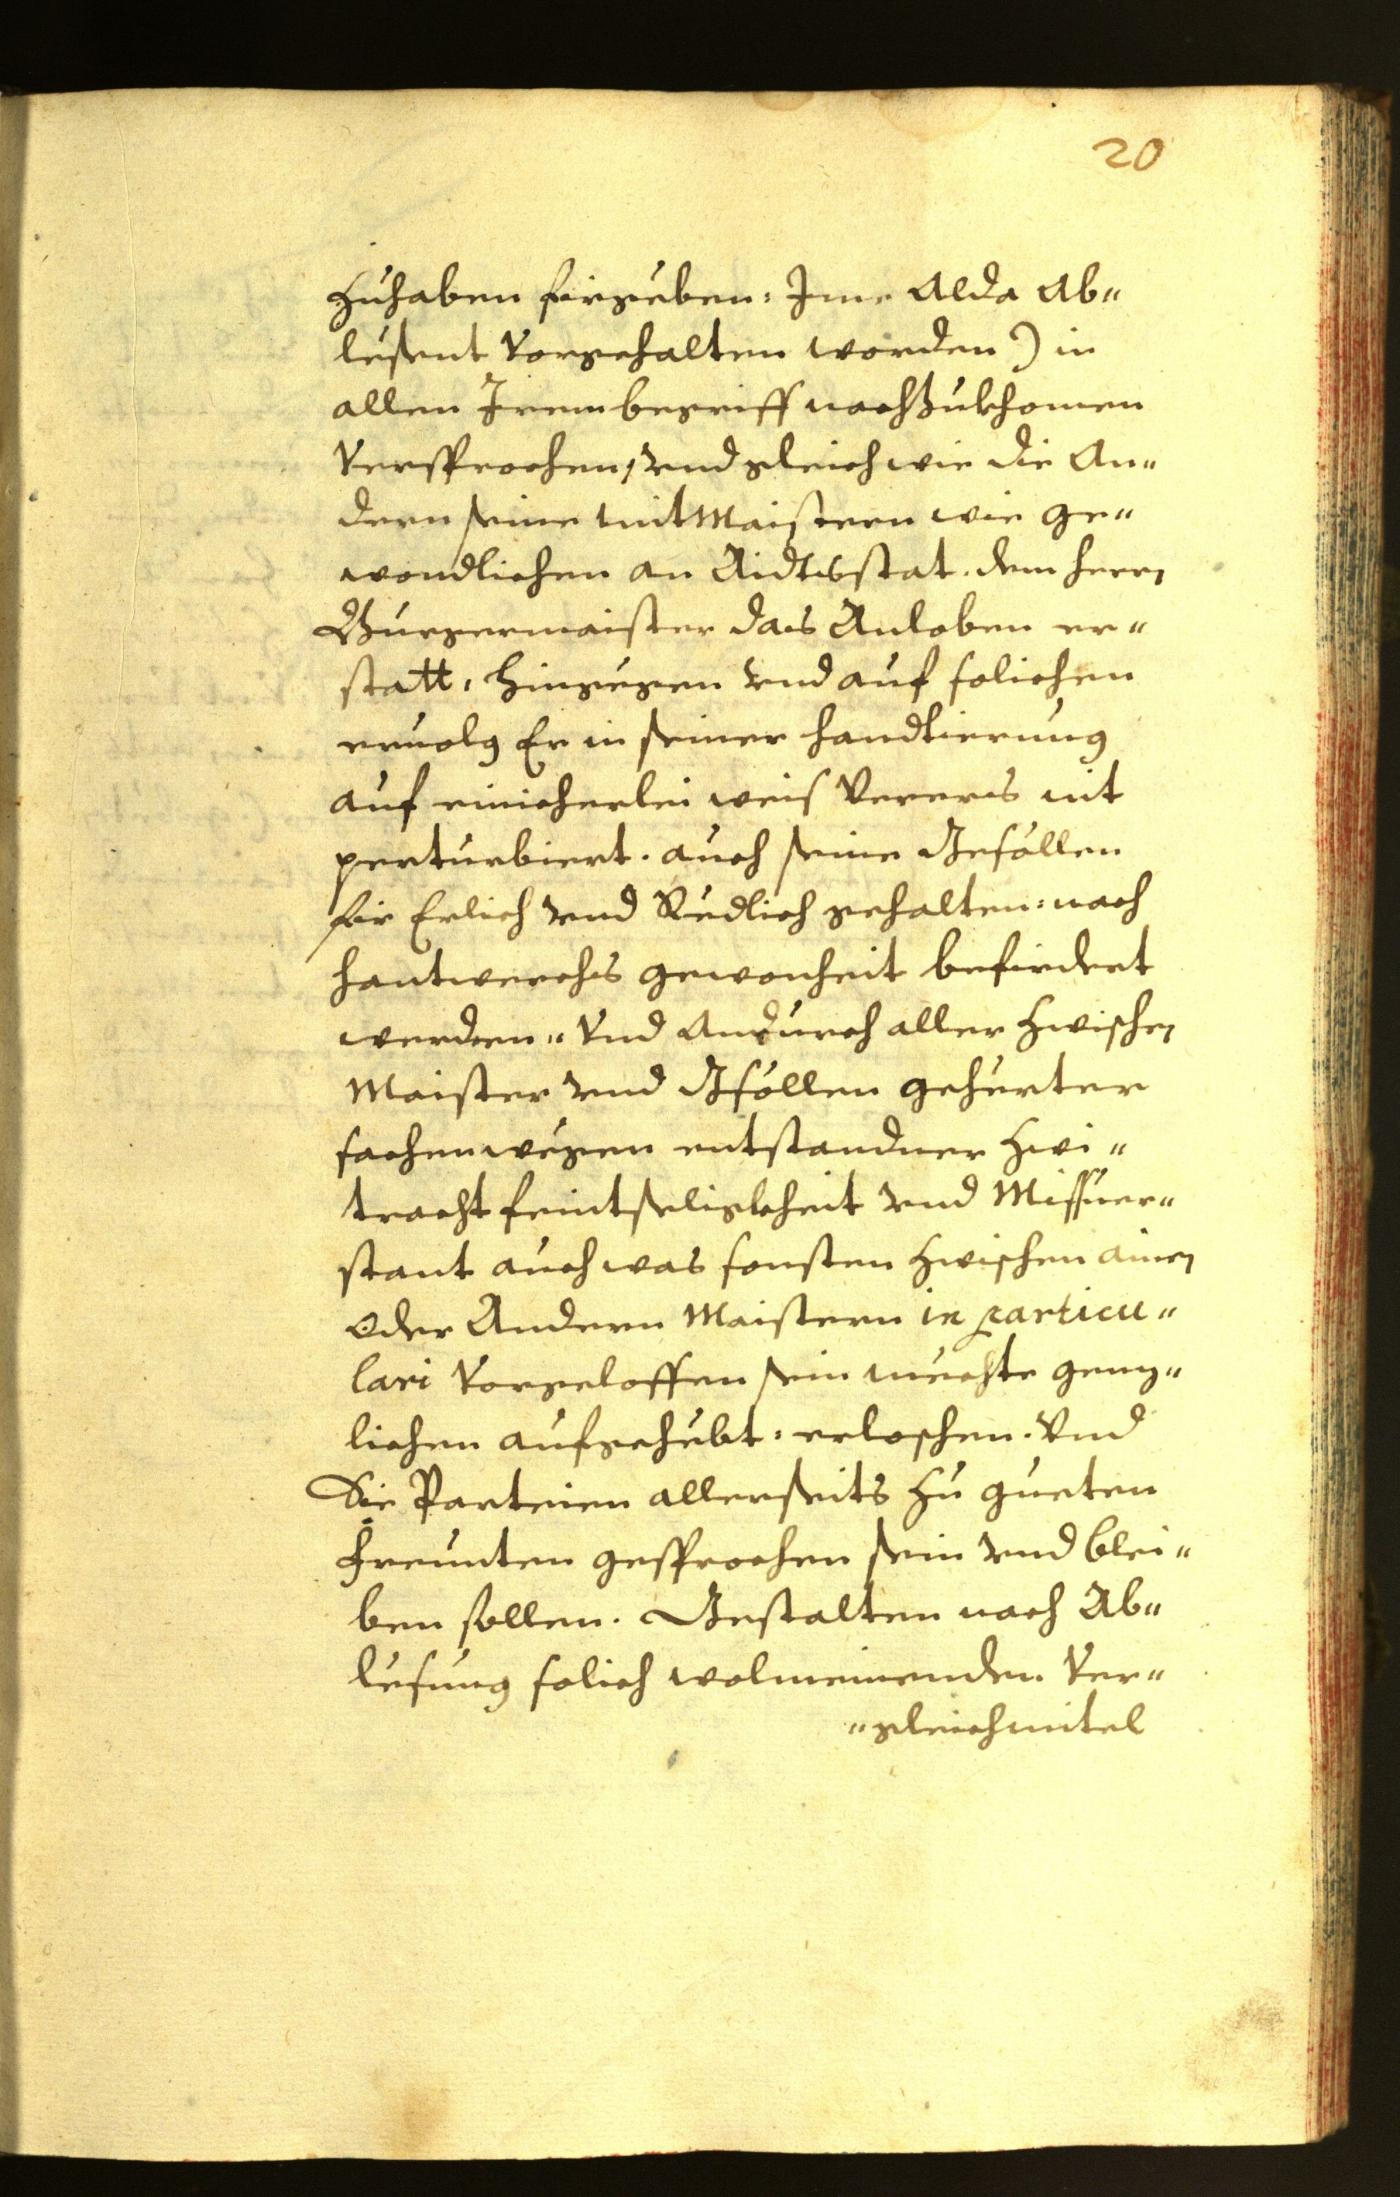 20
Zuhaben firgeben: Ime Alda Ab"
lesent Vorgehalten worden) in
allen Irem begriff nachzukhomen
Versprochen, vnd gleich wie die An"
dern seine mitMaistern wie ge"
wondlichen an Aidtsstat. dem herrn
Burgermaister das Anloben er"
statt, hingegen vnd auf solichen
ervolg Er in seiner handtierung
auf einicherlei weis Verers nit
perturbiert. auch seine Gesöllen
fir Erlich vnd Redlich gehalten: nach
hantwerchs gewonheit befirdert
werden" Vnd Andurch aller Zwischen
Maister vnd Gsöllen geherter
sachen wegen entstandner Zwi"
tracht feintseligkheit vnd Missver"
stant auch was sonsten Zwischen ainen
oder Andern Maistern in particu"
lari Vorgeloffen sein mechte genz"
lichen aufgehebt: erloschen. Vnd
Die Parteien allerseits Zu gueten
freunten gesprochen sein vnd blei"
ben sollen. Gestalten nach Ab"
lesung solich wolmeinenden Ver"
"gleichmitel